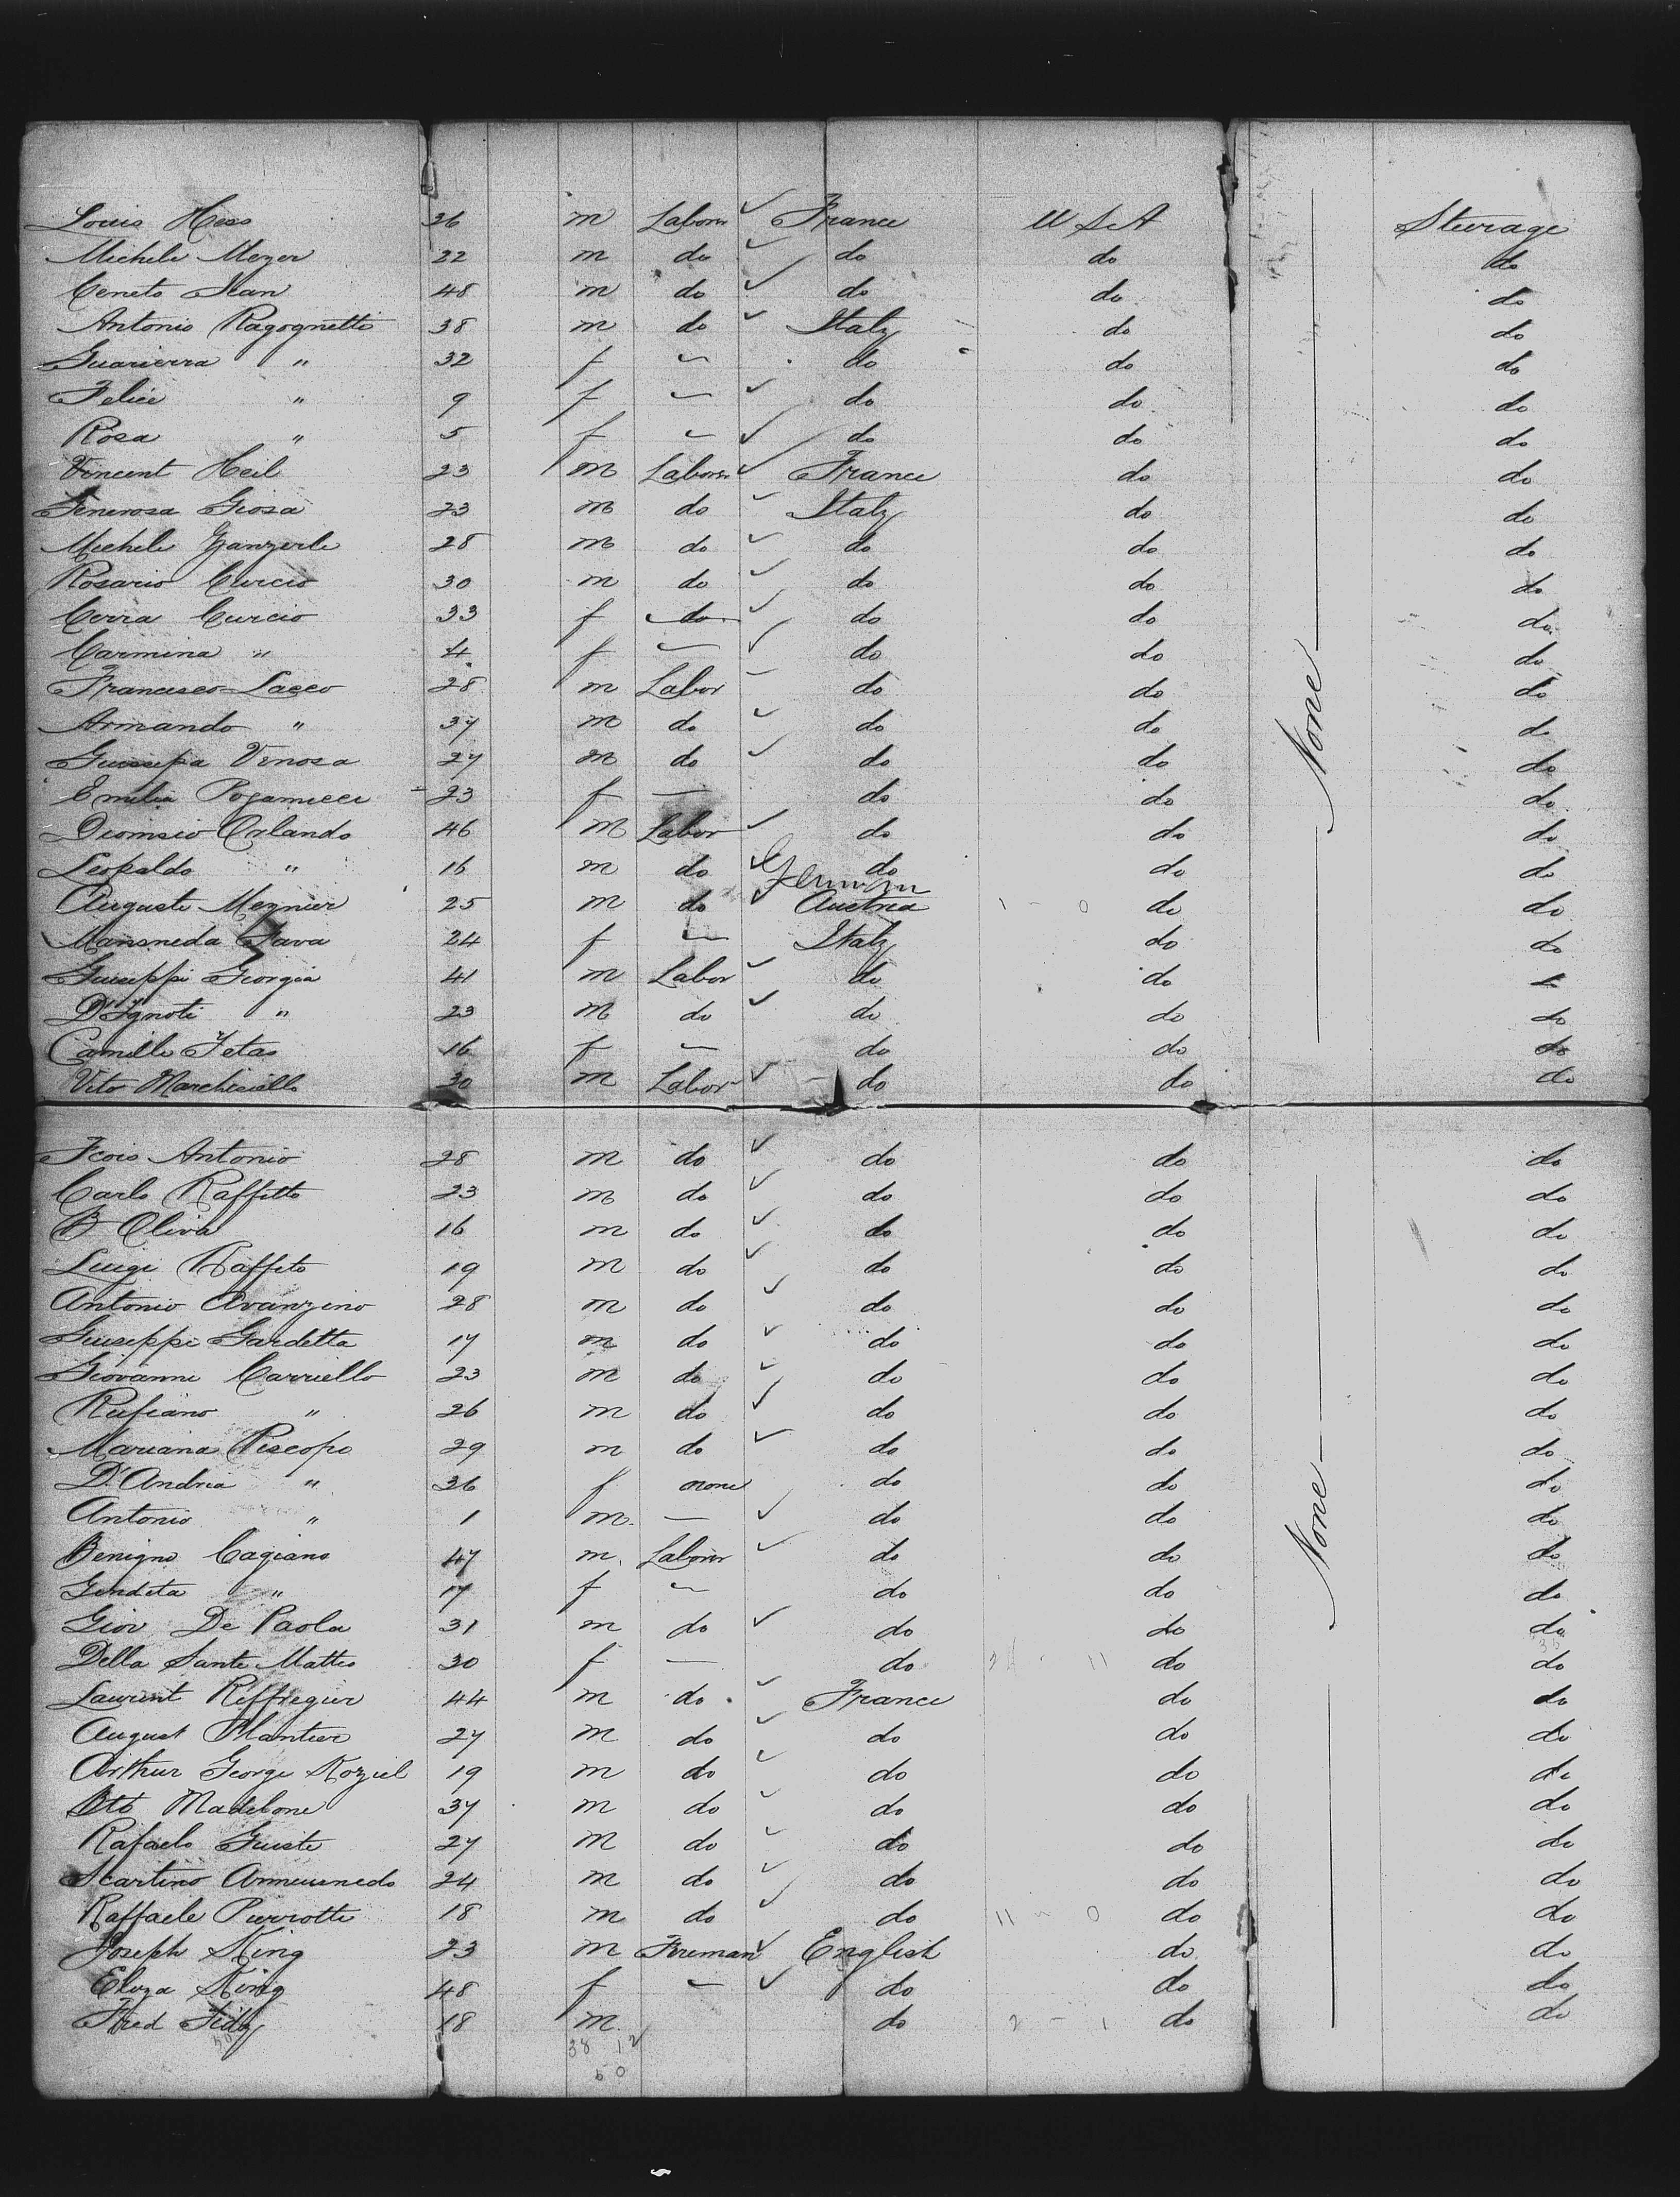 Louis Hess 26 m Laborer ✓ France U S A Steerage
Michele Meyer 22 m do ✓ do do do
Ceneto Jean 48 m do ✓ do do do
Antonio Ragognetti 38 m do ✓ Italy do do
Guarierra " 32 f — do do do
Felice " 9 f — ✓ do do do
Rosa " 5 f — ✓ do do do
Vincent Heil 23 m Laborer ✓ France do do
Generosa Giosa 23 m do ✓ Italy do do
Michele Ganzerle 28 m do ✓ do do do
Rosario Curcio 30 m do ✓ do do do
Cerra Curcio 33 f do ✓ do do do
Carmina " 4 f — ✓ do do None do
Francesco Lacco 28 m Labor — do do do
Armando " 37 m do ✓ do do do
Guissepa Venosa 27 m do ✓ do do do
Emilia 23 f — do do do
Dionisio Orlando 46 m Labor ✓ do do do
Leopaldo " 16 m do ✓ do do do
German
Auguste Megnier 25 m do ✓ Austria 1 - 0 do do
Mansneda Fava 24 f — Italy do do
Guiseppi Georgia 41 m Labor ✓ do do do
D'Ignoti " 23 m do ✓ do do do
Camille Fetas 16 f — do do do
Vito Marchisiello 30 m Labor ✓ do do do
Antonio 28 m do ✓ do do do
Carlo Raffetto 23 m do ✓ do do do
B Oliva 16 m do ✓ do do do
Luigi Raffeto 19 m do ✓ do do do
Antonio Avanzino 28 m do ✓ do do do
Guiseppi Gardetta 17 m do ✓ do do do
Giovanni Carriello 23 m do ✓ do do do
Rufiano " 26 m do ✓ do do do
Mariana Piscopo 29 m do ✓ do do do
D'Andria " 26 f none do do do
Antonio " 1 m — ✓ do do None do
Benigno Cagiano 47 m Laborer ✓ do do do
Gendeta " 17 f — do do do
Giov De Paola 31 m do ✓ do do do
Della Sante Matteo 30 f — do 11 do do
Laurent Reffregier 44 m do ✓ France do do
August Plantier 27 m do ✓ do do do
Arthur George Koziel 19 m do ✓ do do do
Madelone 37 m do ✓ do do do
Rafaelo Guiste 27 m do ✓ do do do
Scartino 24 m do ✓ do do do
Raffaele Pierrotti 18 m do ✓ do 11 - 0 do do
Joseph King 23 m Fireman ✓ English do do
Eloza King 48 f — ✓ do do do
Fred Tidy 18 m do 2 - 1 do do
38 12
50